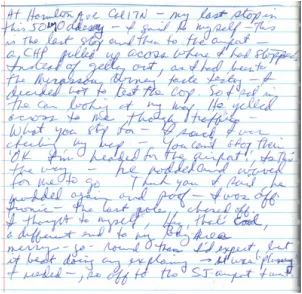 At Hamilton Ave Cal 17N - my last stop in
this SJ Odyssey - I said to myself - This
is the last stop and then to the airport -
a CHP pulled up across where I had stopped
Instead of getting out, as I had been
the
decided not to test the cop. So I sat in
the car looking at my map. He yelled
across to me, through traffic -
What you stop for - I said I was
checking my map - You can't stop there
OK I'm headed for the airport, is this
the way - he nodded and waved
for me to go Thank you I said he
nodded again and poof - I was off
last note, chased off -
I thought to myself, Hey, that's
a different end to my
merry-go-round than I'd expected, but
it beat doing any explaining - it was
I needed -, so off to the SJ airport and